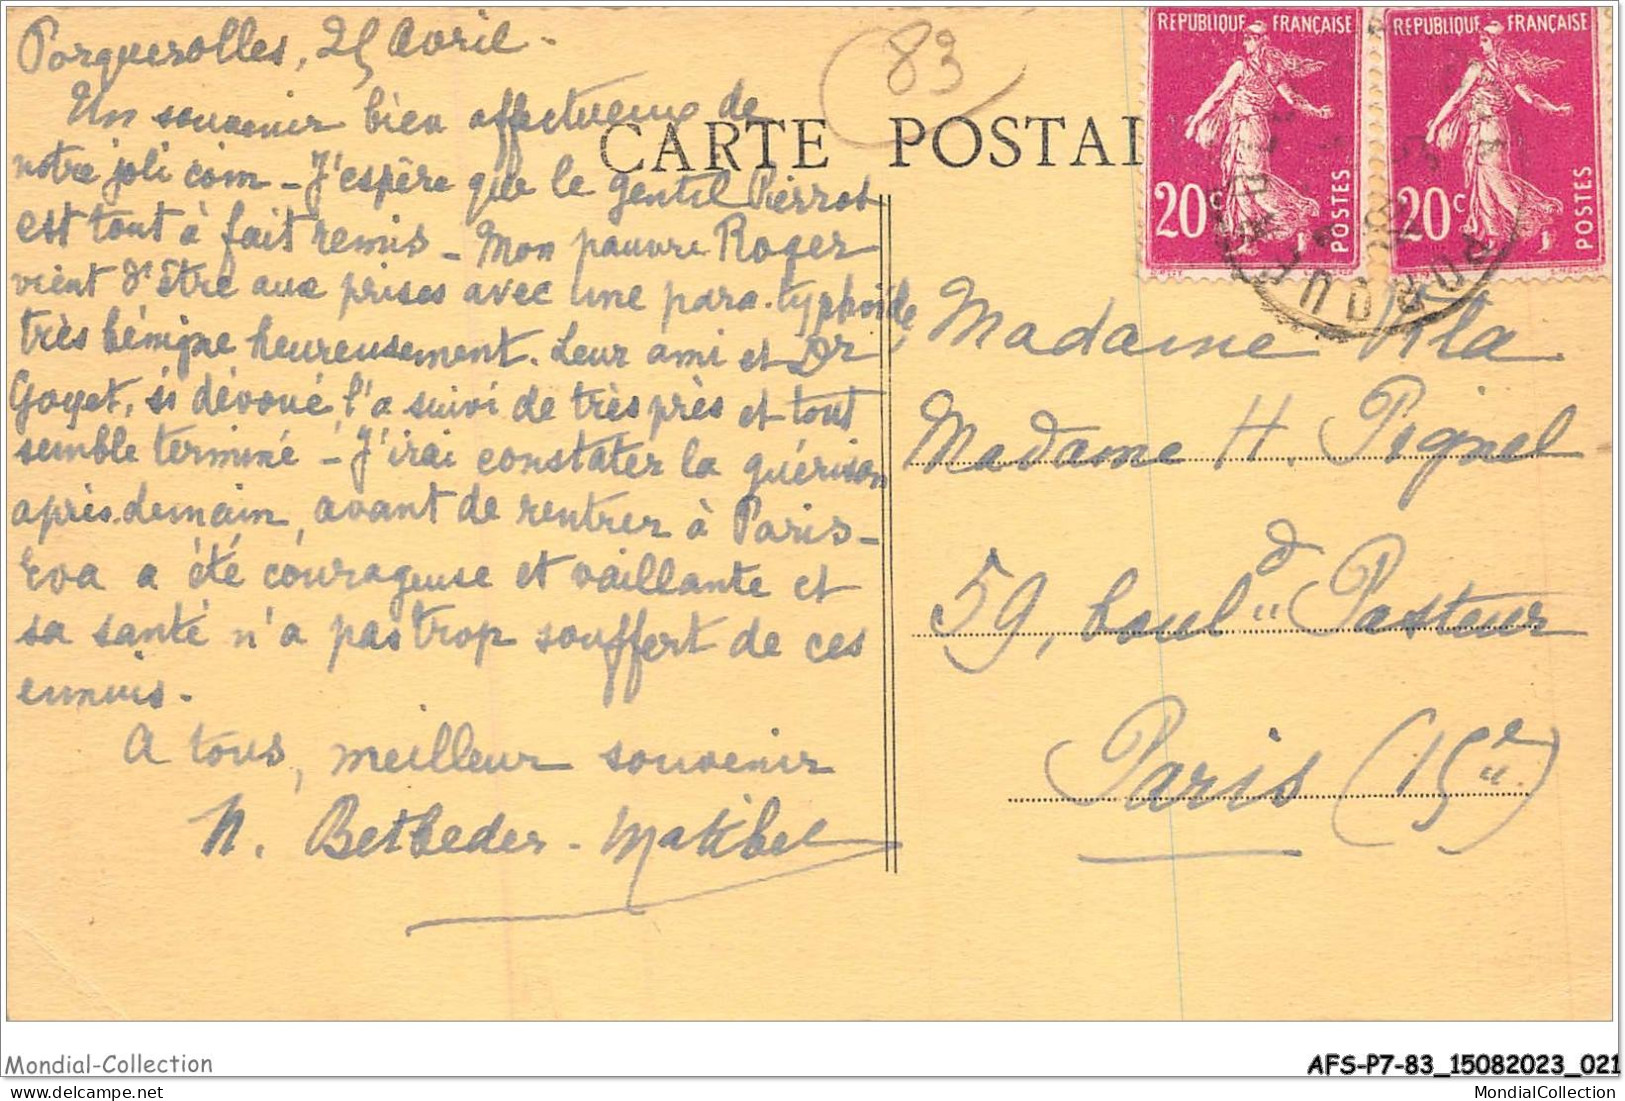 Porquerolles, 25 Avril -
Un souvenir bien affectueux de
notre joli coin - J'espère que le gentil Pierrot
est tout à fait remis - Mon pauvre Roger
vient d'être aux prises avec une para-typhoïde,
très bénigne heureusement. Leur ami et Dr
Goyet, si dévoué, l'a suivi de très près et tout
semble terminé - J'irai constater la guérison
après-demain, avant de rentrer à Paris -
Eva a été courageuse et vaillante et
sa santé n'a pas trop souffert de ces
ennuis -
A tous, meilleur souvenir
N. Betbeder-Matibet
83
CARTE POSTAL
REPUBLIQUE FRANÇAISE
20c
POSTES
REPUBLIQUE FRANÇAISE
20c
POSTES
Madame Vila
Madame H. Pignel
59, boul.d Pasteur
Paris (15e)
Mondial-Collection
AFS-P7-83_15082023_021
MondialCollection